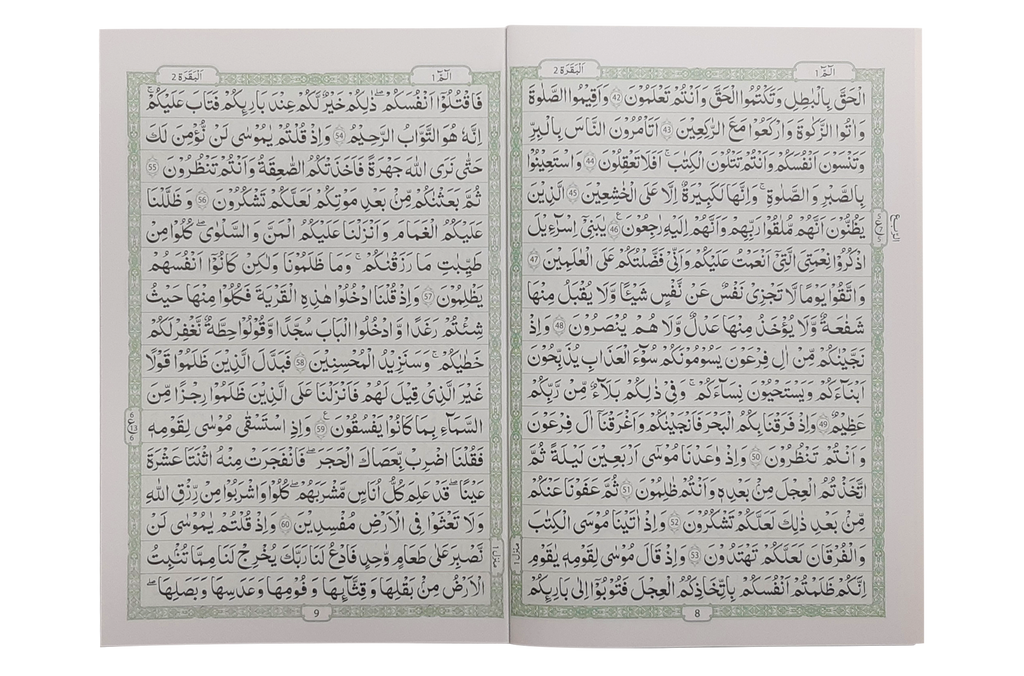 الٓمّٓ 1
اَلْبَقَرَة 2
الْحَقَّ بِالْبَاطِلِ وَتَكْتُمُوا الْحَقَّ وَاَنْتُمْ تَعْلَمُوْنَ 42 وَاَقِيْمُوا الصَّلٰوةَ
وَاٰتُوا الزَّكٰوةَ وَارْكَعُوْا مَعَ الرّٰكِعِيْنَ 43 اَتَأْمُرُوْنَ النَّاسَ بِالْبِرِّ
وَتَنْسَوْنَ اَنْفُسَكُمْ وَاَنْتُمْ تَتْلُوْنَ الْكِتٰبَ ؕ اَفَلَا تَعْقِلُوْنَ 44 وَاسْتَعِيْنُوْا
بِالصَّبْرِ وَالصَّلٰوةِ ؕ وَاِنَّهَا لَكَبِيْرَةٌ اِلَّا عَلَى الْخٰشِعِيْنَ 45 الَّذِيْنَ
يَظُنُّوْنَ اَنَّهُمْ مُّلٰقُوْا رَبِّهِمْ وَاَنَّهُمْ اِلَيْهِ رٰجِعُوْنَ 46 يٰبَنِيْٓ اِسْرَآءِيْلَ
اذْكُرُوْا نِعْمَتِيَ الَّتِيْٓ اَنْعَمْتُ عَلَيْكُمْ وَاَنِّيْ فَضَّلْتُكُمْ عَلَى الْعٰلَمِيْنَ 47
وَاتَّقُوْا يَوْمًا لَّا تَجْزِيْ نَفْسٌ عَنْ نَّفْسٍ شَيْـًٔا وَّلَا يُقْبَلُ مِنْهَا
شَفَاعَةٌ وَّلَا يُؤْخَذُ مِنْهَا عَدْلٌ وَّلَا هُمْ يُنْصَرُوْنَ 48 وَاِذْ
نَجَّيْنٰكُمْ مِّنْ اٰلِ فِرْعَوْنَ يَسُوْمُوْنَكُمْ سُوْٓءَ الْعَذَابِ يُذَبِّحُوْنَ
اَبْنَآءَكُمْ وَيَسْتَحْيُوْنَ نِسَآءَكُمْ ؕ وَفِيْ ذٰلِكُمْ بَلَآءٌ مِّنْ رَّبِّكُمْ
عَظِيْمٌ 49 وَاِذْ فَرَقْنَا بِكُمُ الْبَحْرَ فَاَنْجَيْنٰكُمْ وَاَغْرَقْنَآ اٰلَ فِرْعَوْنَ
وَاَنْتُمْ تَنْظُرُوْنَ 50 وَاِذْ وٰعَدْنَا مُوْسٰٓى اَرْبَعِيْنَ لَيْلَةً ثُمَّ
اتَّخَذْتُمُ الْعِجْلَ مِنْ بَعْدِهٖ وَاَنْتُمْ ظٰلِمُوْنَ 51 ثُمَّ عَفَوْنَا عَنْكُمْ
مِّنْ بَعْدِ ذٰلِكَ لَعَلَّكُمْ تَشْكُرُوْنَ 52 وَاِذْ اٰتَيْنَا مُوْسَى الْكِتٰبَ
وَالْفُرْقَانَ لَعَلَّكُمْ تَهْتَدُوْنَ 53 وَاِذْ قَالَ مُوْسٰى لِقَوْمِهٖ يٰقَوْمِ
اِنَّكُمْ ظَلَمْتُمْ اَنْفُسَكُمْ بِاتِّخَاذِكُمُ الْعِجْلَ فَتُوْبُوْٓا اِلٰى بَارِىِٕكُمْ
8
الٓمّٓ 1
اَلْبَقَرَة 2
فَاقْتُلُوْٓا اَنْفُسَكُمْ ؕ ذٰلِكُمْ خَيْرٌ لَّكُمْ عِنْدَ بَارِىِٕكُمْ فَتَابَ عَلَيْكُمْ ؕ
اِنَّهٗ هُوَ التَّوَّابُ الرَّحِيْمُ 54 وَاِذْ قُلْتُمْ يٰمُوْسٰى لَنْ نُّؤْمِنَ لَكَ
حَتّٰى نَرَى اللّٰهَ جَهْرَةً فَاَخَذَتْكُمُ الصّٰعِقَةُ وَاَنْتُمْ تَنْظُرُوْنَ 55
ثُمَّ بَعَثْنٰكُمْ مِّنْ بَعْدِ مَوْتِكُمْ لَعَلَّكُمْ تَشْكُرُوْنَ 56 وَظَلَّلْنَا
عَلَيْكُمُ الْغَمَامَ وَاَنْزَلْنَا عَلَيْكُمُ الْمَنَّ وَالسَّلْوٰى ؕ كُلُوْا مِنْ
طَيِّبٰتِ مَا رَزَقْنٰكُمْ ؕ وَمَا ظَلَمُوْنَا وَلٰكِنْ كَانُوْٓا اَنْفُسَهُمْ
يَظْلِمُوْنَ 57 وَاِذْ قُلْنَا ادْخُلُوْا هٰذِهِ الْقَرْيَةَ فَكُلُوْا مِنْهَا حَيْثُ
شِئْتُمْ رَغَدًا وَّادْخُلُوا الْبَابَ سُجَّدًا وَّقُوْلُوْا حِطَّةٌ نَّغْفِرْ لَكُمْ
خَطٰيٰكُمْ ؕ وَسَنَزِيْدُ الْمُحْسِنِيْنَ 58 فَبَدَّلَ الَّذِيْنَ ظَلَمُوْا قَوْلًا
غَيْرَ الَّذِيْ قِيْلَ لَهُمْ فَاَنْزَلْنَا عَلَى الَّذِيْنَ ظَلَمُوْا رِجْزًا مِّنَ
السَّمَآءِ بِمَا كَانُوْا يَفْسُقُوْنَ 59 وَاِذِ اسْتَسْقٰى مُوْسٰى لِقَوْمِهٖ
فَقُلْنَا اضْرِبْ بِّعَصَاكَ الْحَجَرَ ؕ فَانْفَجَرَتْ مِنْهُ اثْنَتَا عَشْرَةَ
عَيْنًا ؕ قَدْ عَلِمَ كُلُّ اُنَاسٍ مَّشْرَبَهُمْ ؕ كُلُوْا وَاشْرَبُوْا مِنْ رِّزْقِ اللّٰهِ
وَلَا تَعْثَوْا فِى الْاَرْضِ مُفْسِدِيْنَ 60 وَاِذْ قُلْتُمْ يٰمُوْسٰى لَنْ
نَّصْبِرَ عَلٰى طَعَامٍ وَّاحِدٍ فَادْعُ لَنَا رَبَّكَ يُخْرِجْ لَنَا مِمَّا تُنْۢبِتُ
الْاَرْضُ مِنْ بَقْلِهَا وَقِثَّآىِٕهَا وَفُوْمِهَا وَعَدَسِهَا وَبَصَلِهَا ؕ
9